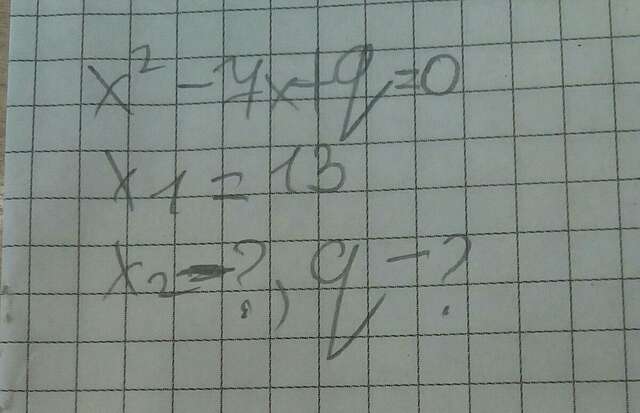 x² - 7x + q = 0
x1 = 13
x2 - ?, q - ?